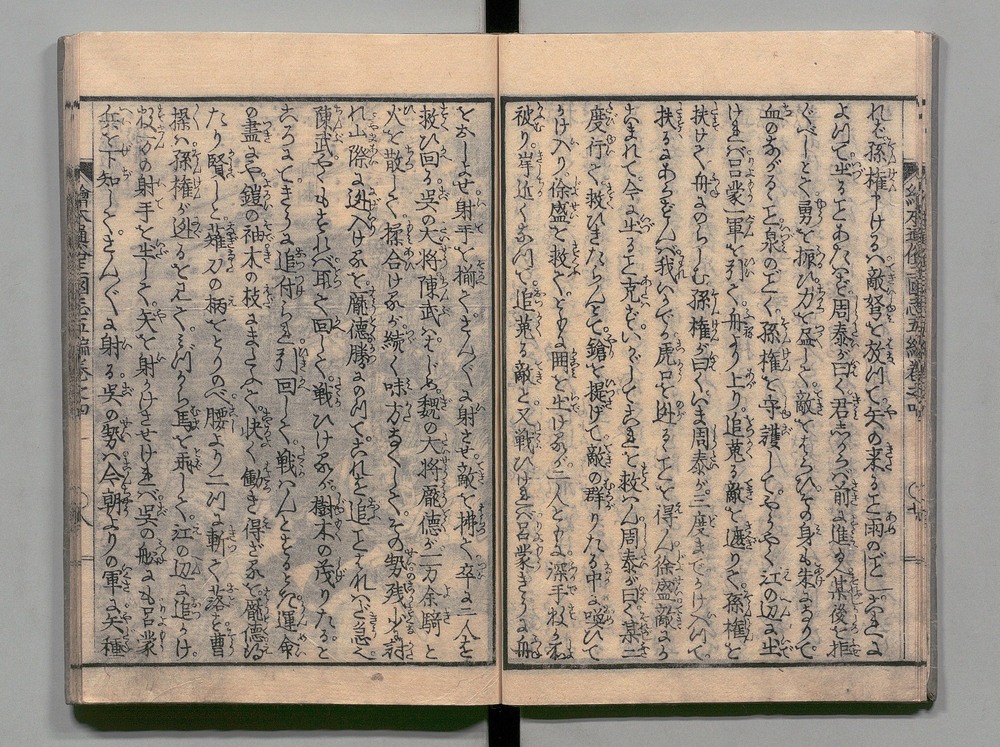 れバ孫権申けるハ敵弩を放つて矢の来ること雨のごとし
よつて出ることあたハず周泰が曰く君ハ前に進め某後を拒
ぐべしとて勇を振ひ力を尽して敵をはらひその身も朱になりて
血のながるゝこと泉のごとく孫権を守護してやうやく江の辺に出
けれバ呂蒙一軍を引て舟より上り追蒐る敵を遮りて孫権を
扶けて舟にのらしむ孫権が曰くいま周泰が三度までかけ入つて
扶るにあらずんバ我いかで虎口を逃ることを得ん徐盛敵に
こまれて今に出ること克ず いかにしてこれを救ハん周泰が曰く某二
度行て救ひきたらんとて鎗を提げて敵の群りたる中に喚ひて
かけ入り徐盛を救てともに囲を出けるが二人ともに深手を
被り岸近くなつて追蒐る敵と又戦ひけれバ呂蒙きたり舟
をよせ射手を揃てさんざんに射させ敵を拂て卒に二人を
救ひ回る呉の大将陳武ハはじめ魏の大将龐徳が一万余騎と
火を散して揉合けるが続く味方なくしてその勢残少に討
れ山際に迯入けるを龐徳勝にのつてこれを追ことはなはだ急
陳武やくもとれバ取て回して戦ひけるが樹木の茂りたると
ころまできたるに追付られ引回して戦ハんとするとき運命
の尽にや鎧の袖木の枝にまとひて快く働き得ざるを龐徳
たり賢しと薙刀の柄をとりのべ腰より二つに斬て落す曹
操ハ孫権が迯るを見てミづから馬を乗して江の辺に追かけ
の射手を出して矢を射かけさせけれバ呉の船にも呂蒙
兵を下知してさんざんに射る呉の勢ハ今朝よりの軍に矢種
繪本通俗三國志五編巻之四
繪本通俗三國志五編巻之四